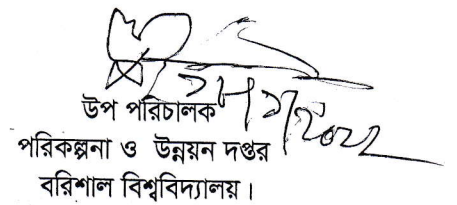 উপ পরিচালক
পরিকল্পনা ও উন্নয়ন দপ্তর
বরিশাল বিশ্ববিদ্যালয়।